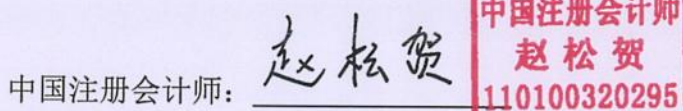 中国注册会计师：赵松贺
中国注册会计师
赵松贺
110100320295